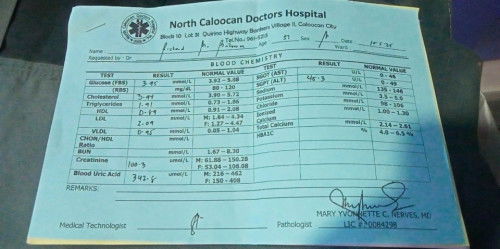 North Caloocan Doctors Hospital
Block 10 Lot 31 Quirino Highway Bankers Village II, Caloocan City
Tel.No.: 961-5215
Name Age 57 Sex
Requested by: Dr. Ward
BLOOD CHEMISTRY
TEST RESULT NORMAL VALUE TEST RESULT NORMAL VALUE
Glucose (FBS) 3.95 mmol/L 3.92 - 5.88 SGOT (AST) U/L 0 - 46
(RBS) mg/dL 80 - 120 SGPT (ALT) 45.3 U/L 0 - 49
Cholesterol mmol/L 3.90 - 5.72 Sodium mmol/L 135 - 148
Triglycerides 1.91 mmol/L 0.73 - 1.86 Potassium mmol/L 3.5 - 5.3
HDL mmol/L 0.91 - 2.08 Chloride mmol/L 98 - 106
LDL 2.09 mmol/L M: 1.84 - 4.34 Ionized mmol/L 1.00 - 1.30
F: 1.27 - 4.47 Calcium
VLDL mmol/L 0.05 - 1.04 Total Calcium mmol/L 2.14 - 2.61
CHOH/HDL mmol/L HBA1C % 4.0 - 6.5 %
Ratio
BUN mmol/L 1.67 - 8.30
Creatinine 100.3 umol/L M: 61.88 - 150.28
F: 53.04 - 108.08
Blood Uric Acid 342.8 umol/L M: 216 - 462
F: 150 - 408
REMARKS:
MARY YVONNETTE C. NERVES, MD
Medical Technologist Pathologist LIC # 0084298